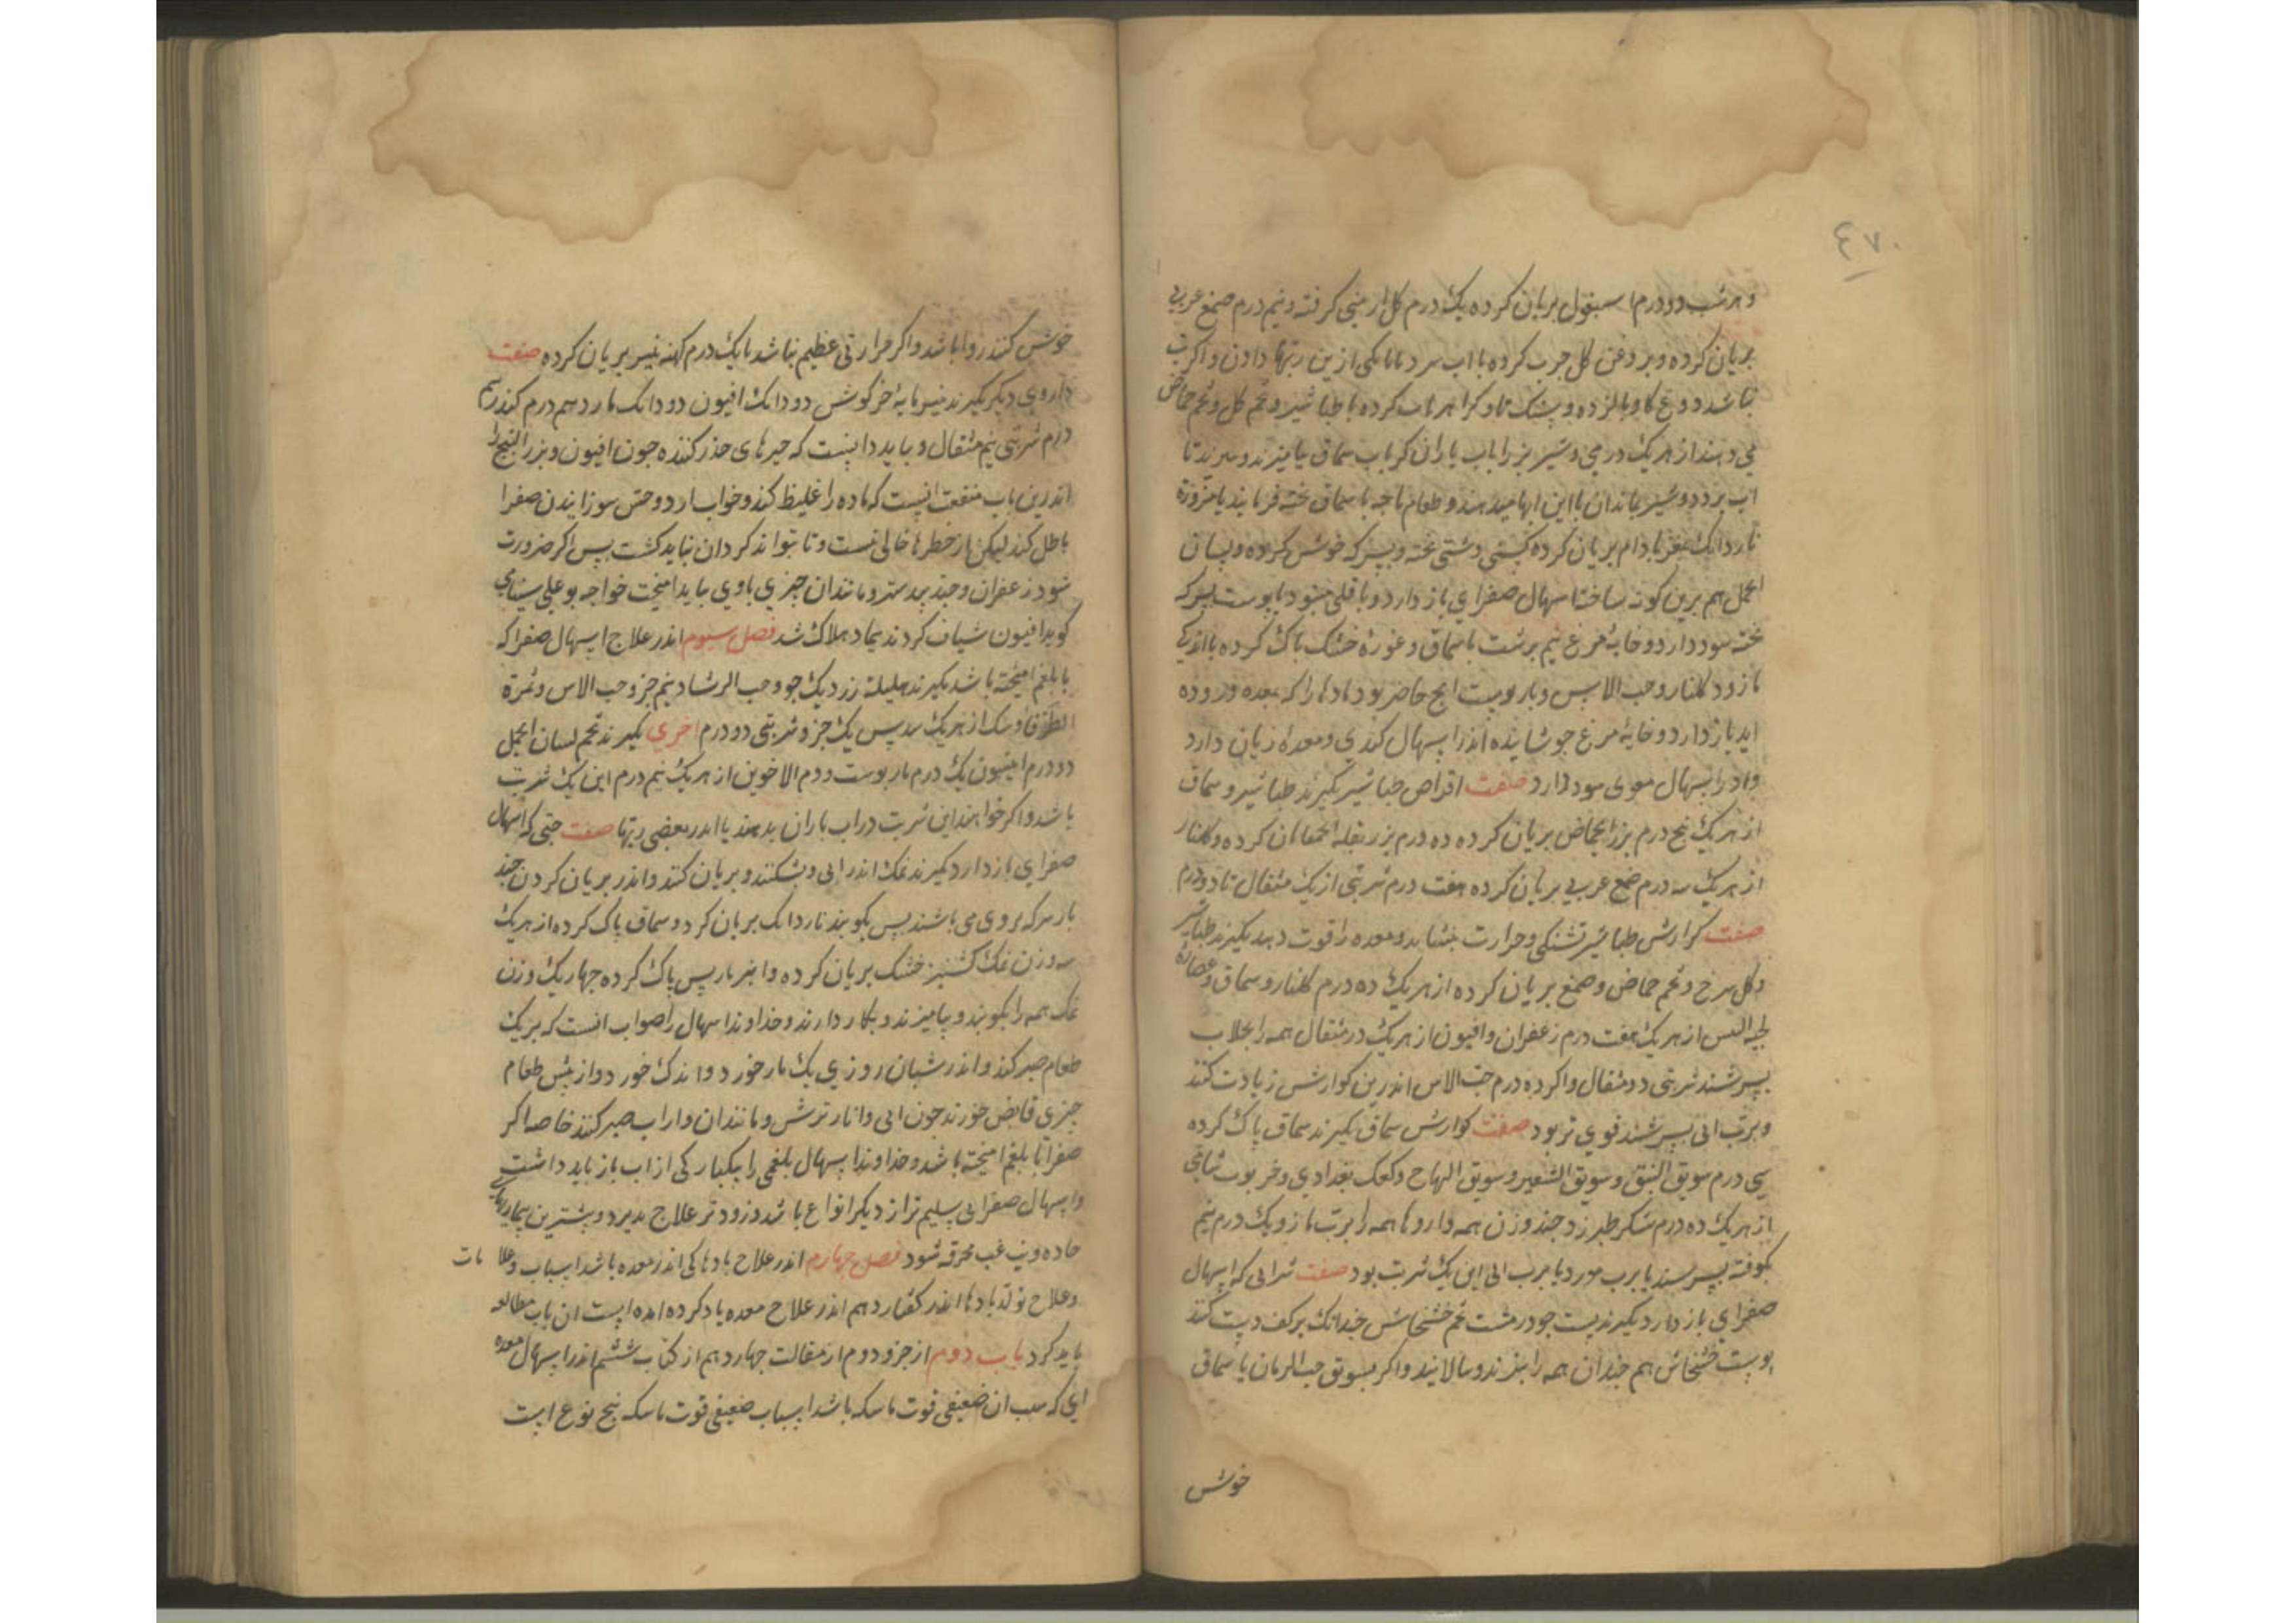 ٤٧٠
و هر شب دو درم اسبغول بریان کرده یک درم کل ارمنی کرفته و نیم درم صمغ عربی
بریان کرده و بروغن کل جرب کرده با اب سرد یا با یکی ازین ربها دادن و اکر تب
نباشد دوغ کاو بالزده و پشک تاو کرا هر باب کرده با طباشیر و تخم کل و تخم حماض
می دهند از هر یک درمی و شیر بز را باب باران کر باب سماق بیامیزند و بپزند تا
اب برود و شیر بماند ان با این ابها میدهند و طعام باجه با سماق بخته فرمایند یا مزورة
ناردانک بمغز بادام بریان کرده کبکی دشتی بخته و بسرکه خوش کرده و لسان
الحمل هم برین کونه ساخته اسهال صفرای باز دارد و باقلی با پوست بسرکه
بخته سود دارد و خایه مرغ نیم برشت با سماق و غوره خشک باک کرده با اندکی
مازو و کلنار و حب الاس و نار پوست انج حاضر بود مادها را که بمعده و روده
اید باز دارد و خایه مرغ جوشانیده اندر اسهال کندی و معده زیان دارد
و اندر اسهال معوی سود دارد صفت اقراص طباشیر بکیرند طباشیر و سماق
از هر یک بنج درم بزر الحماض بریان کرده ده درم بزر بقله الحمقا بریان کرده و کلنار
از هر یک سه درم صمغ عربی بریان کرده هفت درم شربتی از یک مثقال تا دو درم
صفت کوارش طباشیر تشنکی و حرارت بنشاند و معده را قوت دهد بکیرند طباشیر
و کل سرخ و تخم حماض و صمغ بریان کرده از هر یک ده درم کلنار و سماق و عصاره
لحیه التیس از هر یک هفت درم زعفران و افیون از هر یک درمثقال همه را بجلاب
بسرشند شربتی دو مثقال و اکر ده درم حب الاس اندرین کوارش زیادت کنند
و برب ابی بسرشند قوی تر بود صفت کوارش سماق بکیرند سماق باک کرده
سی درم سویق النبق و سویق الشعیر و سویق التفاح و کعک بغدادی و خرنوب شامی
از هر یک ده درم شکر طبرزد جند وزن همه داروها همه را برب مازو یک درم نیم
کوفته بسرشند یا برب مورد یا برب ابی این یک شربت بود صفت شرابی که اسهال
صفرای باز دارد بکیرند پست جو درمشت تخم خشخاش جندانک بر کف دست کنند
پوست خشخاش هم جندان همه را بپزند و بپالایند و اکر بسویق حب الرمان یا سماق
خوش
خوش کنند روا باشد و اکر حرارتی عظیم نباشد با یک درم کهنه پنیر بریان کرده صفت
داروی دیکر بکیرند پنیر مایه خرکوش دو دانک افیون دو دانک مازو هم درم کندر سه
درم شربتی نیم مثقال و بباید دانست که جیزهای خدر کننده جون افیون و بزر البنج را
اندرین باب منفعت انست که ماده را غلیظ کند و خواب ارد و حس سوزانیدن صفرا
باطل کند لیکن از خطرها خالی نیست و تا بتواند کرد ان نباید کشت پس اکر ضرورت
شود زعفران و جند بیدستر و مانند ان جیزی با وی بباید امیخت خواجه بو علی سینا می
کوید افیون شیاف کردند بیمار هلاک شد فصل سیوم اندر علاج اسهال صفرا که
با بلغم امیخته باشد بکیرند هلیله زرد یک جزو حب الرشاد نیم جز و حب الاس و ثمرة
الطرفا و سک از هر یک سدیس یک جزو شربتی دو درم اخری بکیرند تخم لسان الحمل
دو درم افیون یک درم نار پوست و دم الاخوین از هر یک نیم درم این یک شربت
باشد و اکر خواهند این شربت در اب باران بدهند یا اندر بعضی ربها صفت حبی که اسهال
صفرای باز دارد بکیرند نمک اندرانی و بشکنند و بریان کنند و اندر بریان کردن جند
بار سرکه بروی می باشند پس بکوبند ناردانک بریان کرد و سماق پاک کرده از هر یک
سه وزن نمک کشنیز خشک بریان کرده و انبرباریس پاک کرده جهار یک وزن
نمک همه را بکوبند و بیامیزند و بکار دارند و خداوند اسهال را صواب انست که بر یک
طعام صبر کند و اندر شبان روزی یک بار خورد و اندک خورد و از پیش طعام
جیزی قابض خورند جون ابی و انار ترش و مانند ان و از اب صبر کنند خاصه اکر
صفرا با بلغم امیخته باشد و خداوند اسهال بلغمی را بیکبارکی از اب باز باید داشت
و اسهال صفرایی سلیم تر از دیکر انواع باشد و زود تر علاج پذیرد و بیشترین بیماریهای
حاده و تب غب محرقه شود فصل جهارم اندر علاج بادها کی اندر معده باشد اسباب و علامات
و علاج تولد بادها اندر کفتار دهم اندر علاج معده یاد کرده امده است ان باب مطالعه
باید کرد باب دوم از جزو دوم از مقالت جهاردهم از کتاب ششم اندر اسهال معده
ای که سبب ان ضعیفی قوت ماسکه باشد اسباب ضعیفی قوت ماسکه بنج نوع است